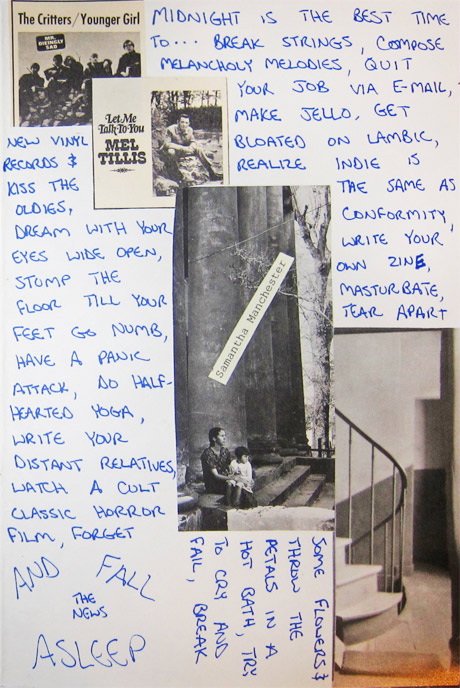 The Critters/Younger Girl
MR.
DIEINGLY
SAD
Let Me
Talk To You
MEL
TILLIS
Samantha Manchester
MIDNIGHT IS THE BEST TIME
TO... BREAK STRINGS, COMPOSE
MELANCHOLY MELODIES, QUIT
YOUR JOB VIA E-MAIL,
MAKE JELLO, GET
BLOATED ON LAMBIC,
REALIZE INDIE IS
THE SAME AS
CONFORMITY,
WRITE YOUR
OWN ZINE,
MASTURBATE,
TEAR APART
SOME FLOWERS &
THROW THE
PETALS IN A
HOT BATH, TRY
TO CRY AND
FAIL, BREAK
NEW VINYL
RECORDS &
KISS THE
OLDIES,
DREAM WITH YOUR
EYES WIDE OPEN,
STOMP THE
FLOOR TILL YOUR
FEET GO NUMB,
HAVE A PANIC
ATTACK, DO HALF-
HEARTED YOGA,
WRITE YOUR
DISTANT RELATIVES,
WATCH A CULT
CLASSIC HORROR
FILM, FORGET
THE
NEWS
AND FALL
ASLEEP